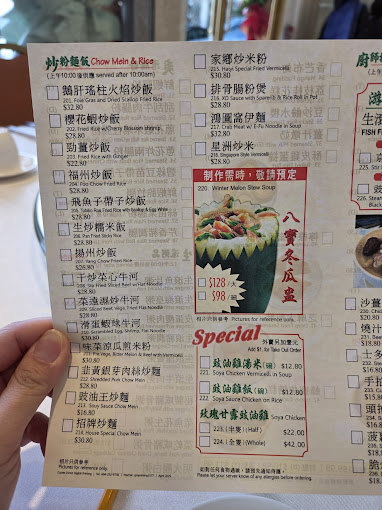 炒粉麵飯 Chow Mein & Rice
(上午10:00後供應 served after 10:00am)
鵝肝瑤柱火焰炒飯
201. Foie Gras and Dried Scallop Fried Rice
$32.80
櫻花蝦炒飯
202. Fried Rice w/Cherry Blossom shrimp
$28.80
薑炒飯
203. Fried Rice with Ginger
$22.80
福州炒飯
204. Foo Chow Fried Rice
$28.80
飛魚子帶子炒飯
$28.80
生炒糯米飯
206. Pan Fried Sticky Rice
$28.80
揚州炒飯
207. Yang Chow Fried Rice
$26.80
干炒菜心牛河
$28.80
菜遠濕炒牛河
209. Sliced Beef, Vege, Fried Flat Noodle
$28.80
滑蛋蝦球牛河
$30.80
味菜涼瓜煎米粉
$28.80
韮黃銀芽肉絲炒麵
212. Shredded Pork Chow Mein
$28.80
豉油王炒麵
213. Soya Sauce Chow Mein
$26.80
招牌炒麵
214. House Special Chow Mein
$30.80
相片只供參考
Pictures for reference only.
家鄉炒米粉
215. Special Fried Vermicelli
$30.80
排骨腸粉煲
216. XO Sauce with Sparerib & Rice Roll in Pot
$28.80
鴻圖窩伊麵
217. Crab Meat w/ E-Fu Noodle in Soup
$32.80
星洲炒米
219. Singapore Style Vermicelli
$28.80
制作需時，敬請預定
220. Winter Melon Stew Soup
八寶冬瓜盅
$128/大
$98/細
相片只供參考 Pictures for reference only.
Special
外賣另加壹元
Add $1. for Take Out Order
豉油雞湯米(碗) $12.80
221. Soya Chicken Vermicelli in Soup
豉油雞飯(碗) $12.80
222. Soya Sauce Chicken on Rice
玫瑰甘露豉油雞 Soya Chicken
223. (半隻) (Half) $22.00
224. (全隻) (Whole) $42.00
Please let your server know of any allergies before ordering.
廚師
生滾
FISH F